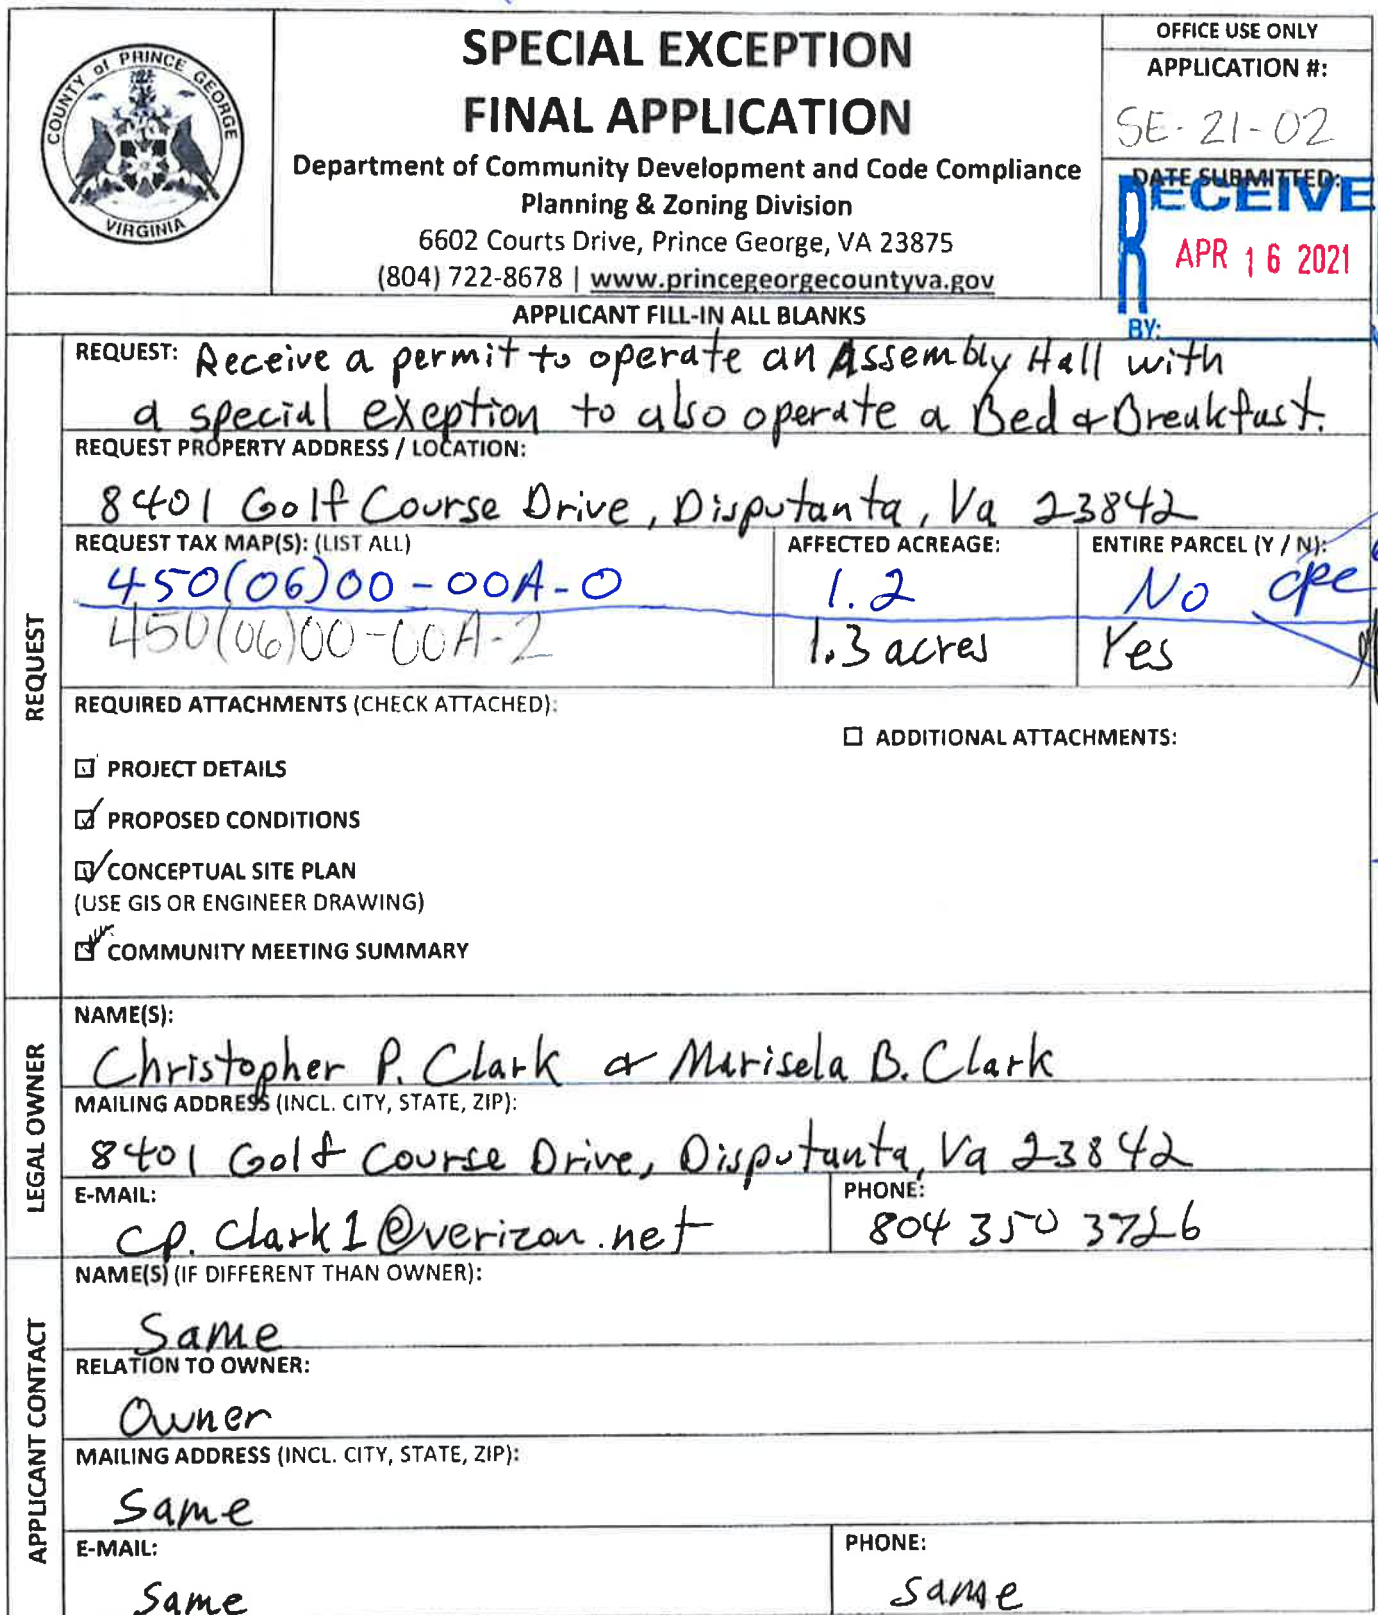 COUNTY of PRINCE GEORGE
VIRGINIA
SPECIAL EXCEPTION
FINAL APPLICATION
Department of Community Development and Code Compliance
Planning & Zoning Division
6602 Courts Drive, Prince George, VA 23875
(804) 722-8678 | www.princegeorgecountyva.gov
OFFICE USE ONLY
APPLICATION #:
SE-21-02
DATE SUBMITTED:
RECEIVE
APR 16 2021
BY:
APPLICANT FILL-IN ALL BLANKS
REQUEST
REQUEST: Receive a permit to operate an Assembly Hall with
a special exeption to also operate a Bed & Breakfast.
REQUEST PROPERTY ADDRESS / LOCATION:
8401 Golf Course Drive, Disputanta, Va 23842
REQUEST TAX MAP(S): (LIST ALL)
450(06)00-00A-0
450(06)00-00A-2
AFFECTED ACREAGE:
1.2
1.3 acres
ENTIRE PARCEL (Y / N):
No cpc
Yes
REQUIRED ATTACHMENTS (CHECK ATTACHED):
☐ ADDITIONAL ATTACHMENTS:
☑ PROJECT DETAILS
☑ PROPOSED CONDITIONS
☑ CONCEPTUAL SITE PLAN
(USE GIS OR ENGINEER DRAWING)
☑ COMMUNITY MEETING SUMMARY
LEGAL OWNER
NAME(S):
Christopher P. Clark & Marisela B. Clark
MAILING ADDRESS (INCL. CITY, STATE, ZIP):
8401 Golf Course Drive, Disputanta, Va 23842
E-MAIL:
cp.clark1@verizon.net
PHONE:
804 350 3726
APPLICANT CONTACT
NAME(S) (IF DIFFERENT THAN OWNER):
Same
RELATION TO OWNER:
Owner
MAILING ADDRESS (INCL. CITY, STATE, ZIP):
Same
E-MAIL:
Same
PHONE:
Same